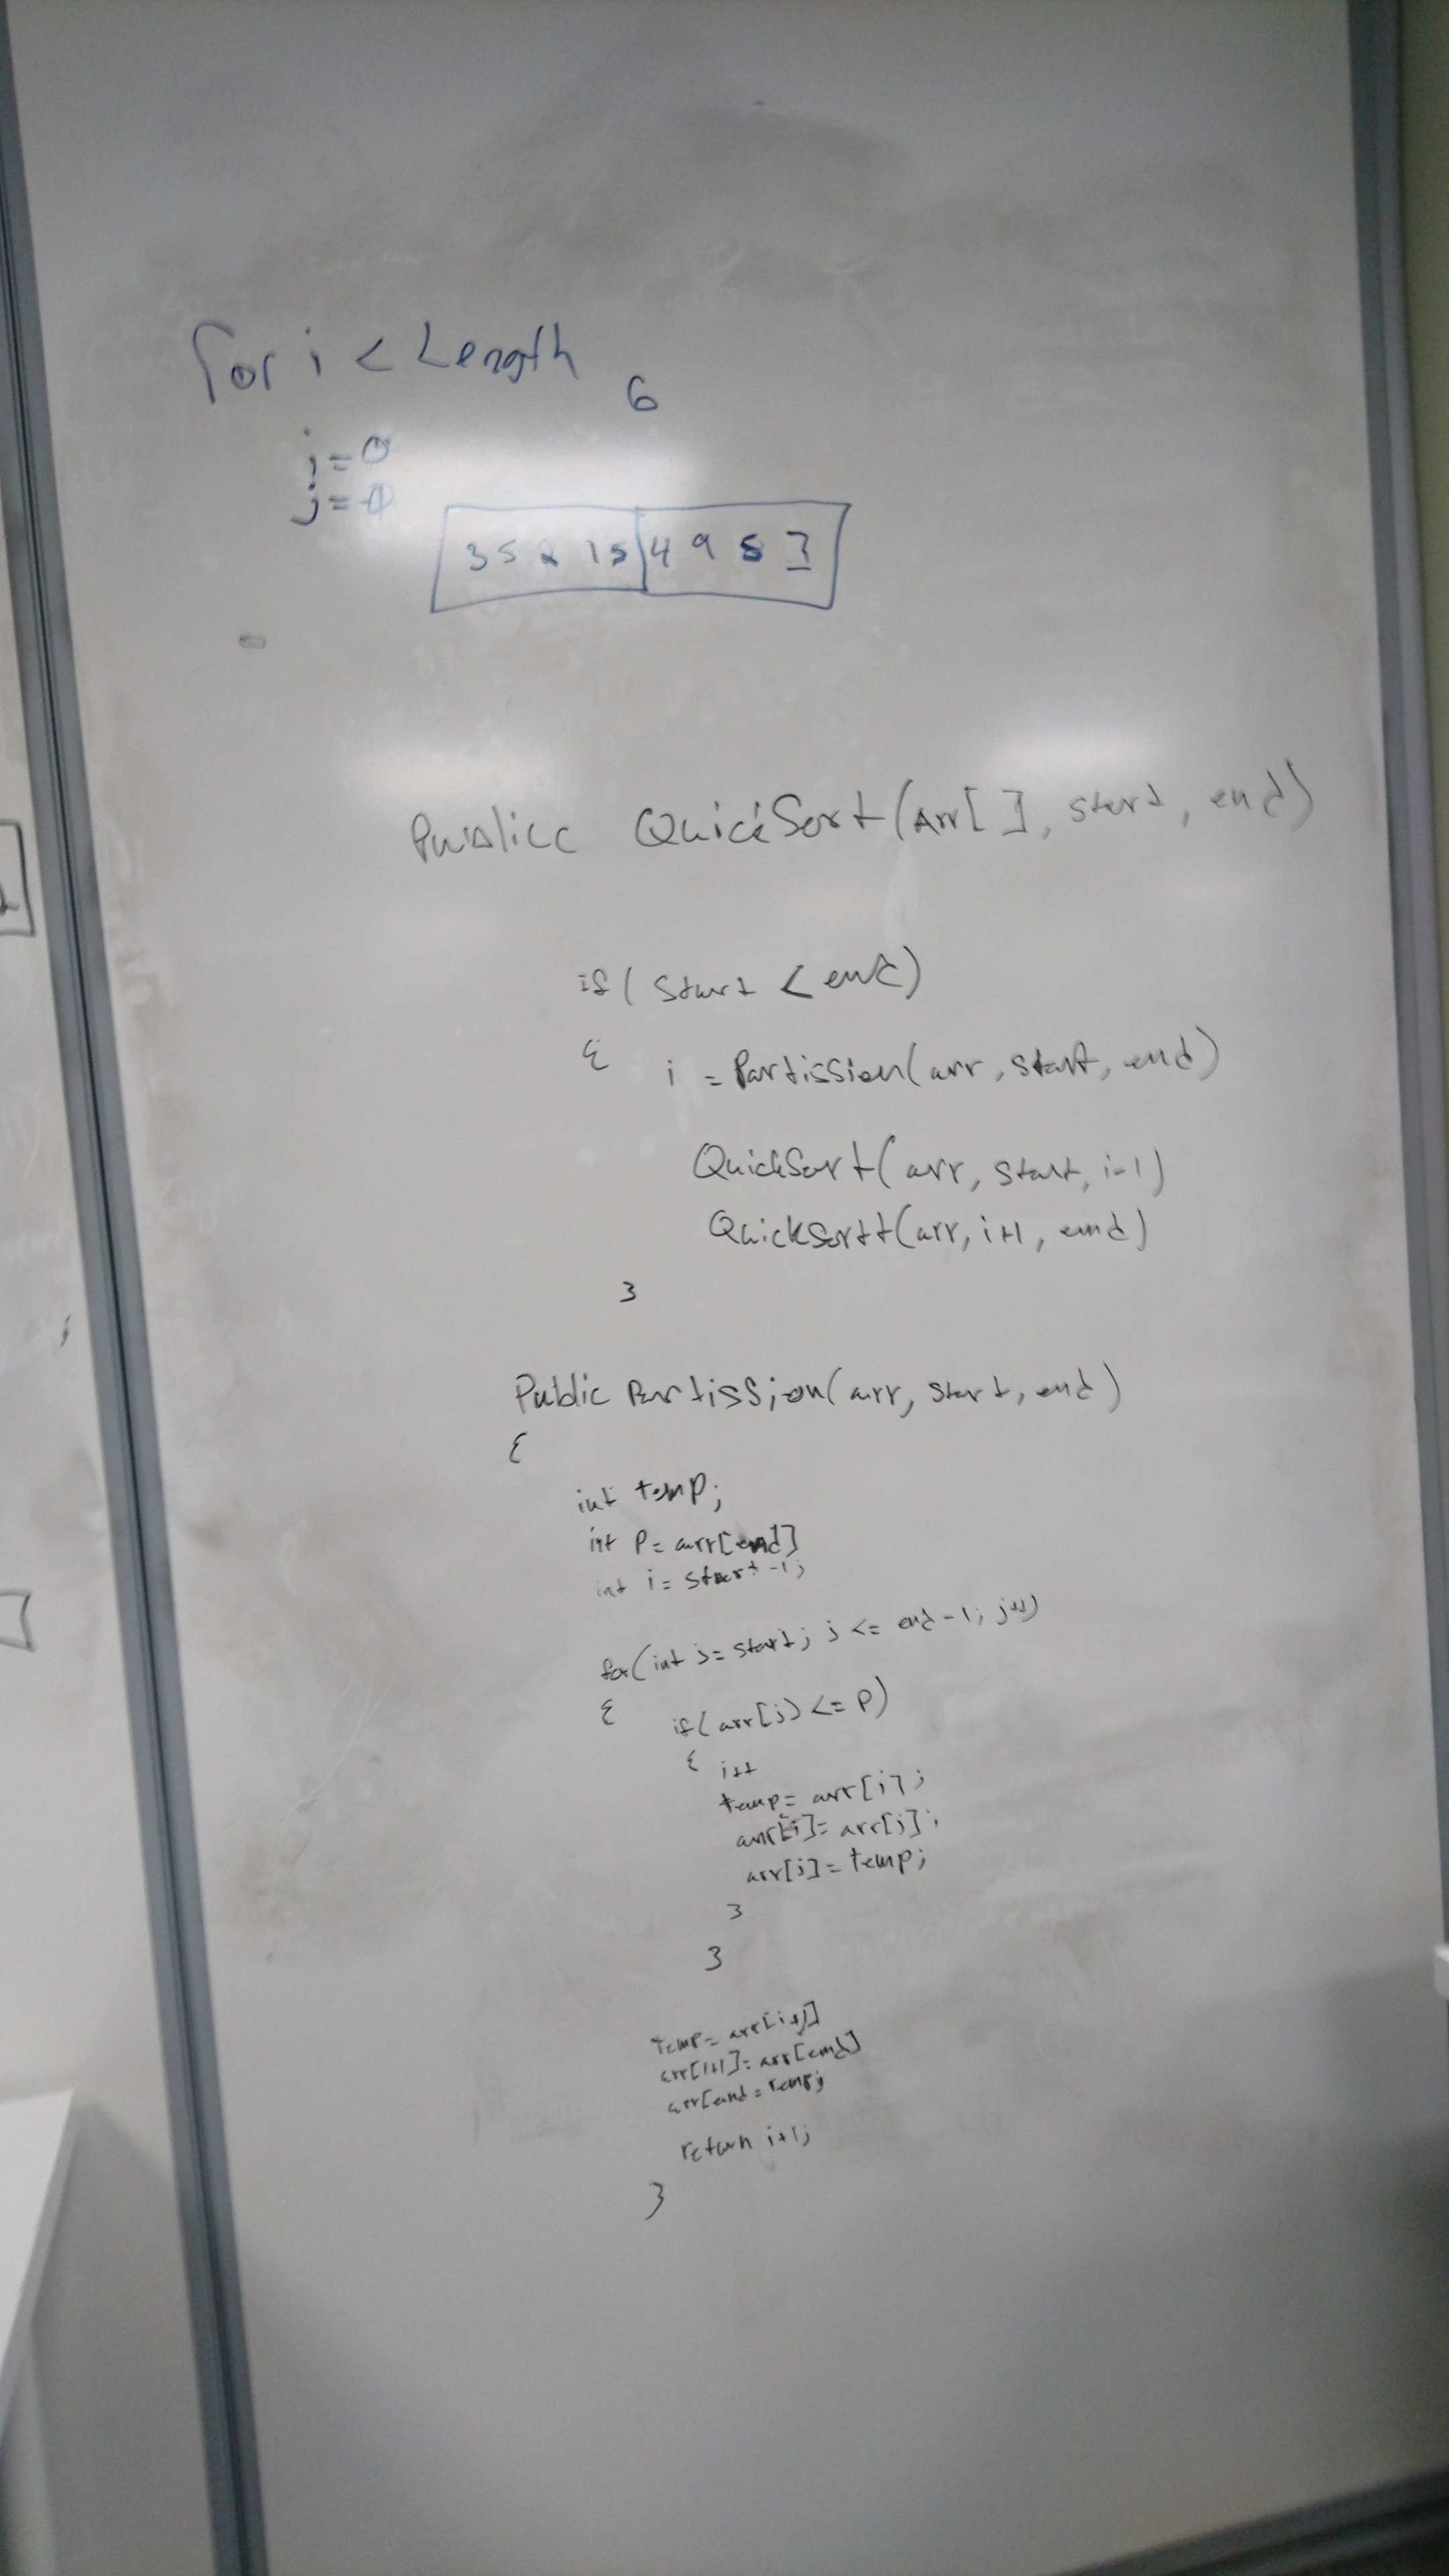 for i < Length
6
i=0
j=0
3 5 2 15 4 9 8 7
Publicc QuickSort(Arr[], start, end)
if( start < end)
{ i = Partission(arr, start, end)
QuickSort(arr, start, i-1)
QuickSortt(arr, i+1, end)
}
Public Partission(arr, start, end)
{
int temp;
int P= arr[end]
int i= start -1;
for(int j= start; j <= end-1; j++)
{ if( arr[j] <= P)
{ i++
temp= arr[i];
arr[i]= arr[j];
arr[j]= temp;
}
}
temp= arr[i+1]
arr[i+1]= arr[end]
arr[end = temp;
return i+1;
}